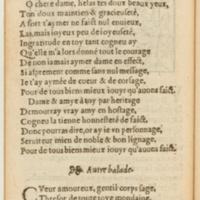 O chere dame, helas tes doux beaux yeux,
Ton doux maintien & gracieuseté,
A fort t'aymer ne faict nul enuieux,
Las, mais ioyeux peu de ioyeuseté,
Ingratitude en toy tant cogneu ay
Qu'elle m'a lors donné tout le courage
De non iamais aymer dame en effect,
Si asprement comme sans nul message,
Je t'ay aymée de cueur & de corsage,
Pour de tous biens mieux iouyr qu'auons faict.
Dame & amye à toy par heritage
Demourray vray amy en hostage,
Cogneu la tienne honnesteté de faict.
Donc pourras dire, or ay ie en personnage,
Seruiteur mien de noble & bon lignage,
Pour de tous biens mieux iouyr qu'auons faict.
Autre balade.
CVeur amoureux, gentil corps sage,
Thresor de toute ioye mondaine,